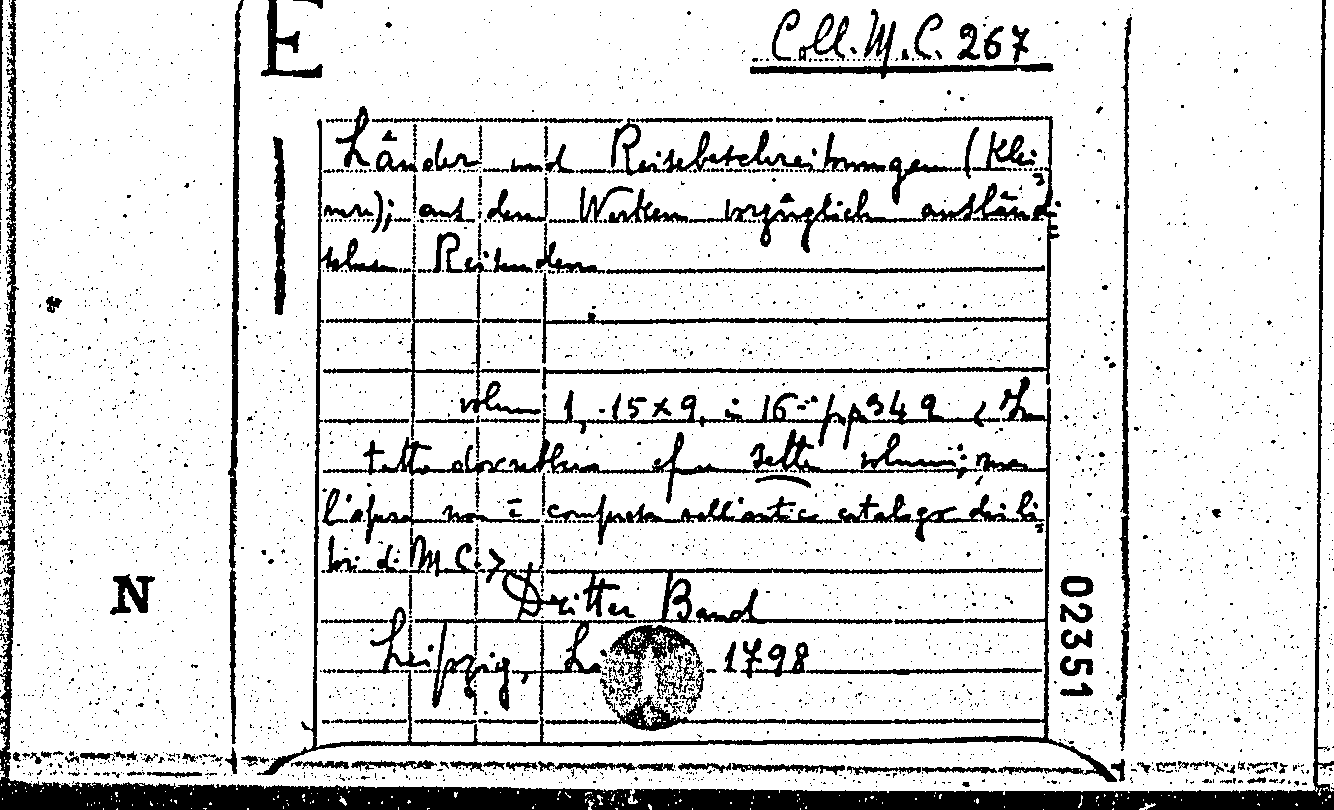 E
Coll. M. C. 267
Länder und Reisebeschreibungen (Klei=
nere); aus den Werken vorzüglich ausländi=
schen Reisenden
volum 1, -15x9, in 16-° pp 349 (In
tutto dovrebbero esser sette volumi; ma
l'opera non è compresa nell'antico catalogo dei li=
bri di M. C.>
Dritter Band
Leipzig, 1798
N
02351